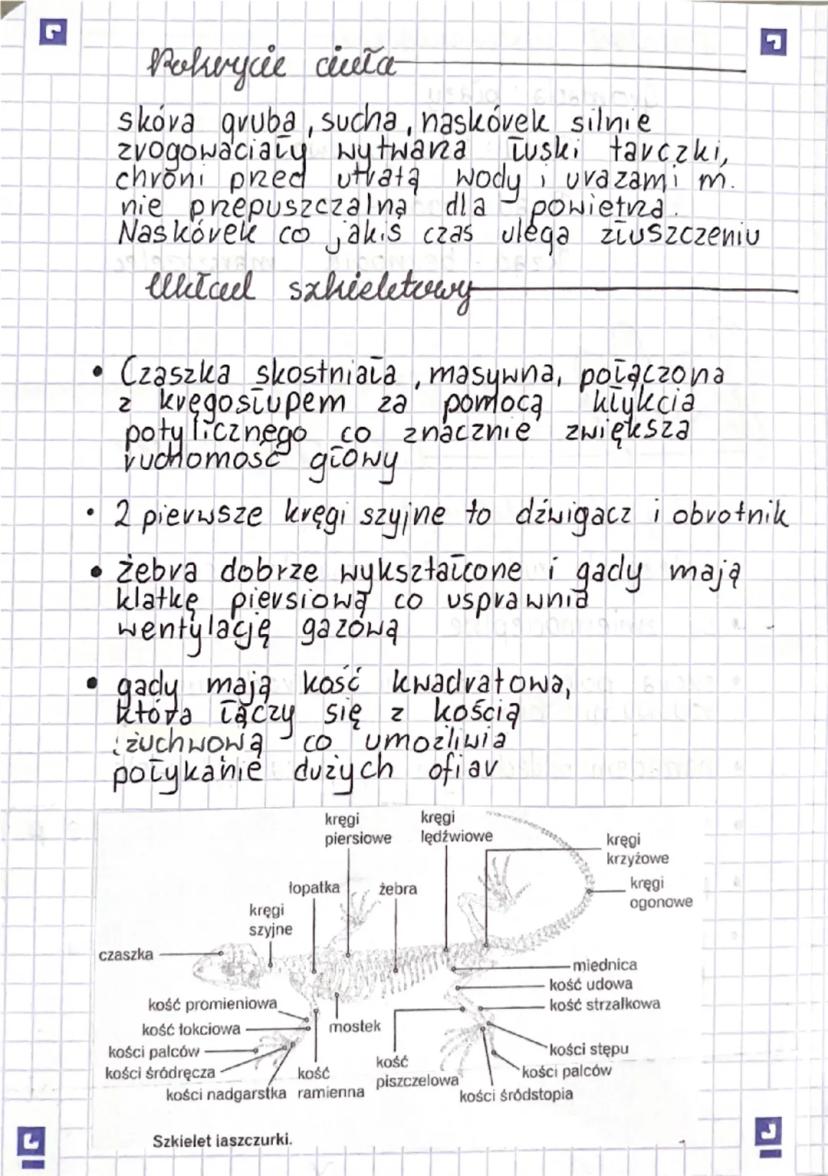 Pokrycie ciała
skóra gruba, sucha, naskórek silnie
zrogowaciały wytwarza łuski tarczki,
chroni przed utratą wody i urazami m.
nie przepuszczalna dla powietrza.
Naskórek co jakiś czas ulega złuszczeniu
Układ szkieletowy
• Czaszka skostniała, masywna, połączona
z kręgosłupem za pomocą kłykcia
potylicznego co znacznie zwiększa
ruchomość głowy
• 2 pierwsze kręgi szyjne to dźwigacz i obrotnik
• żebra dobrze wykształcone i gady mają
klatkę piersiową co usprawnia
wentylację gazową
• gady mają kość kwadratową,
która łączy się z kością
żuchwową co umożliwia
połykanie dużych ofiar
kręgi
piersiowe
kręgi
lędźwiowe
kręgi
krzyżowe
kręgi
ogonowe
łopatka
żebra
kręgi
szyjne
czaszka
miednica
kość udowa
kość strzałkowa
kość promieniowa
kość łokciowa
mostek
kości palców
kości śródręcza
kości nadgarstka
kość
ramienna
kość
piszczelowa
kości stępu
kości palców
kości śródstopia
Szkielet jaszczurki.